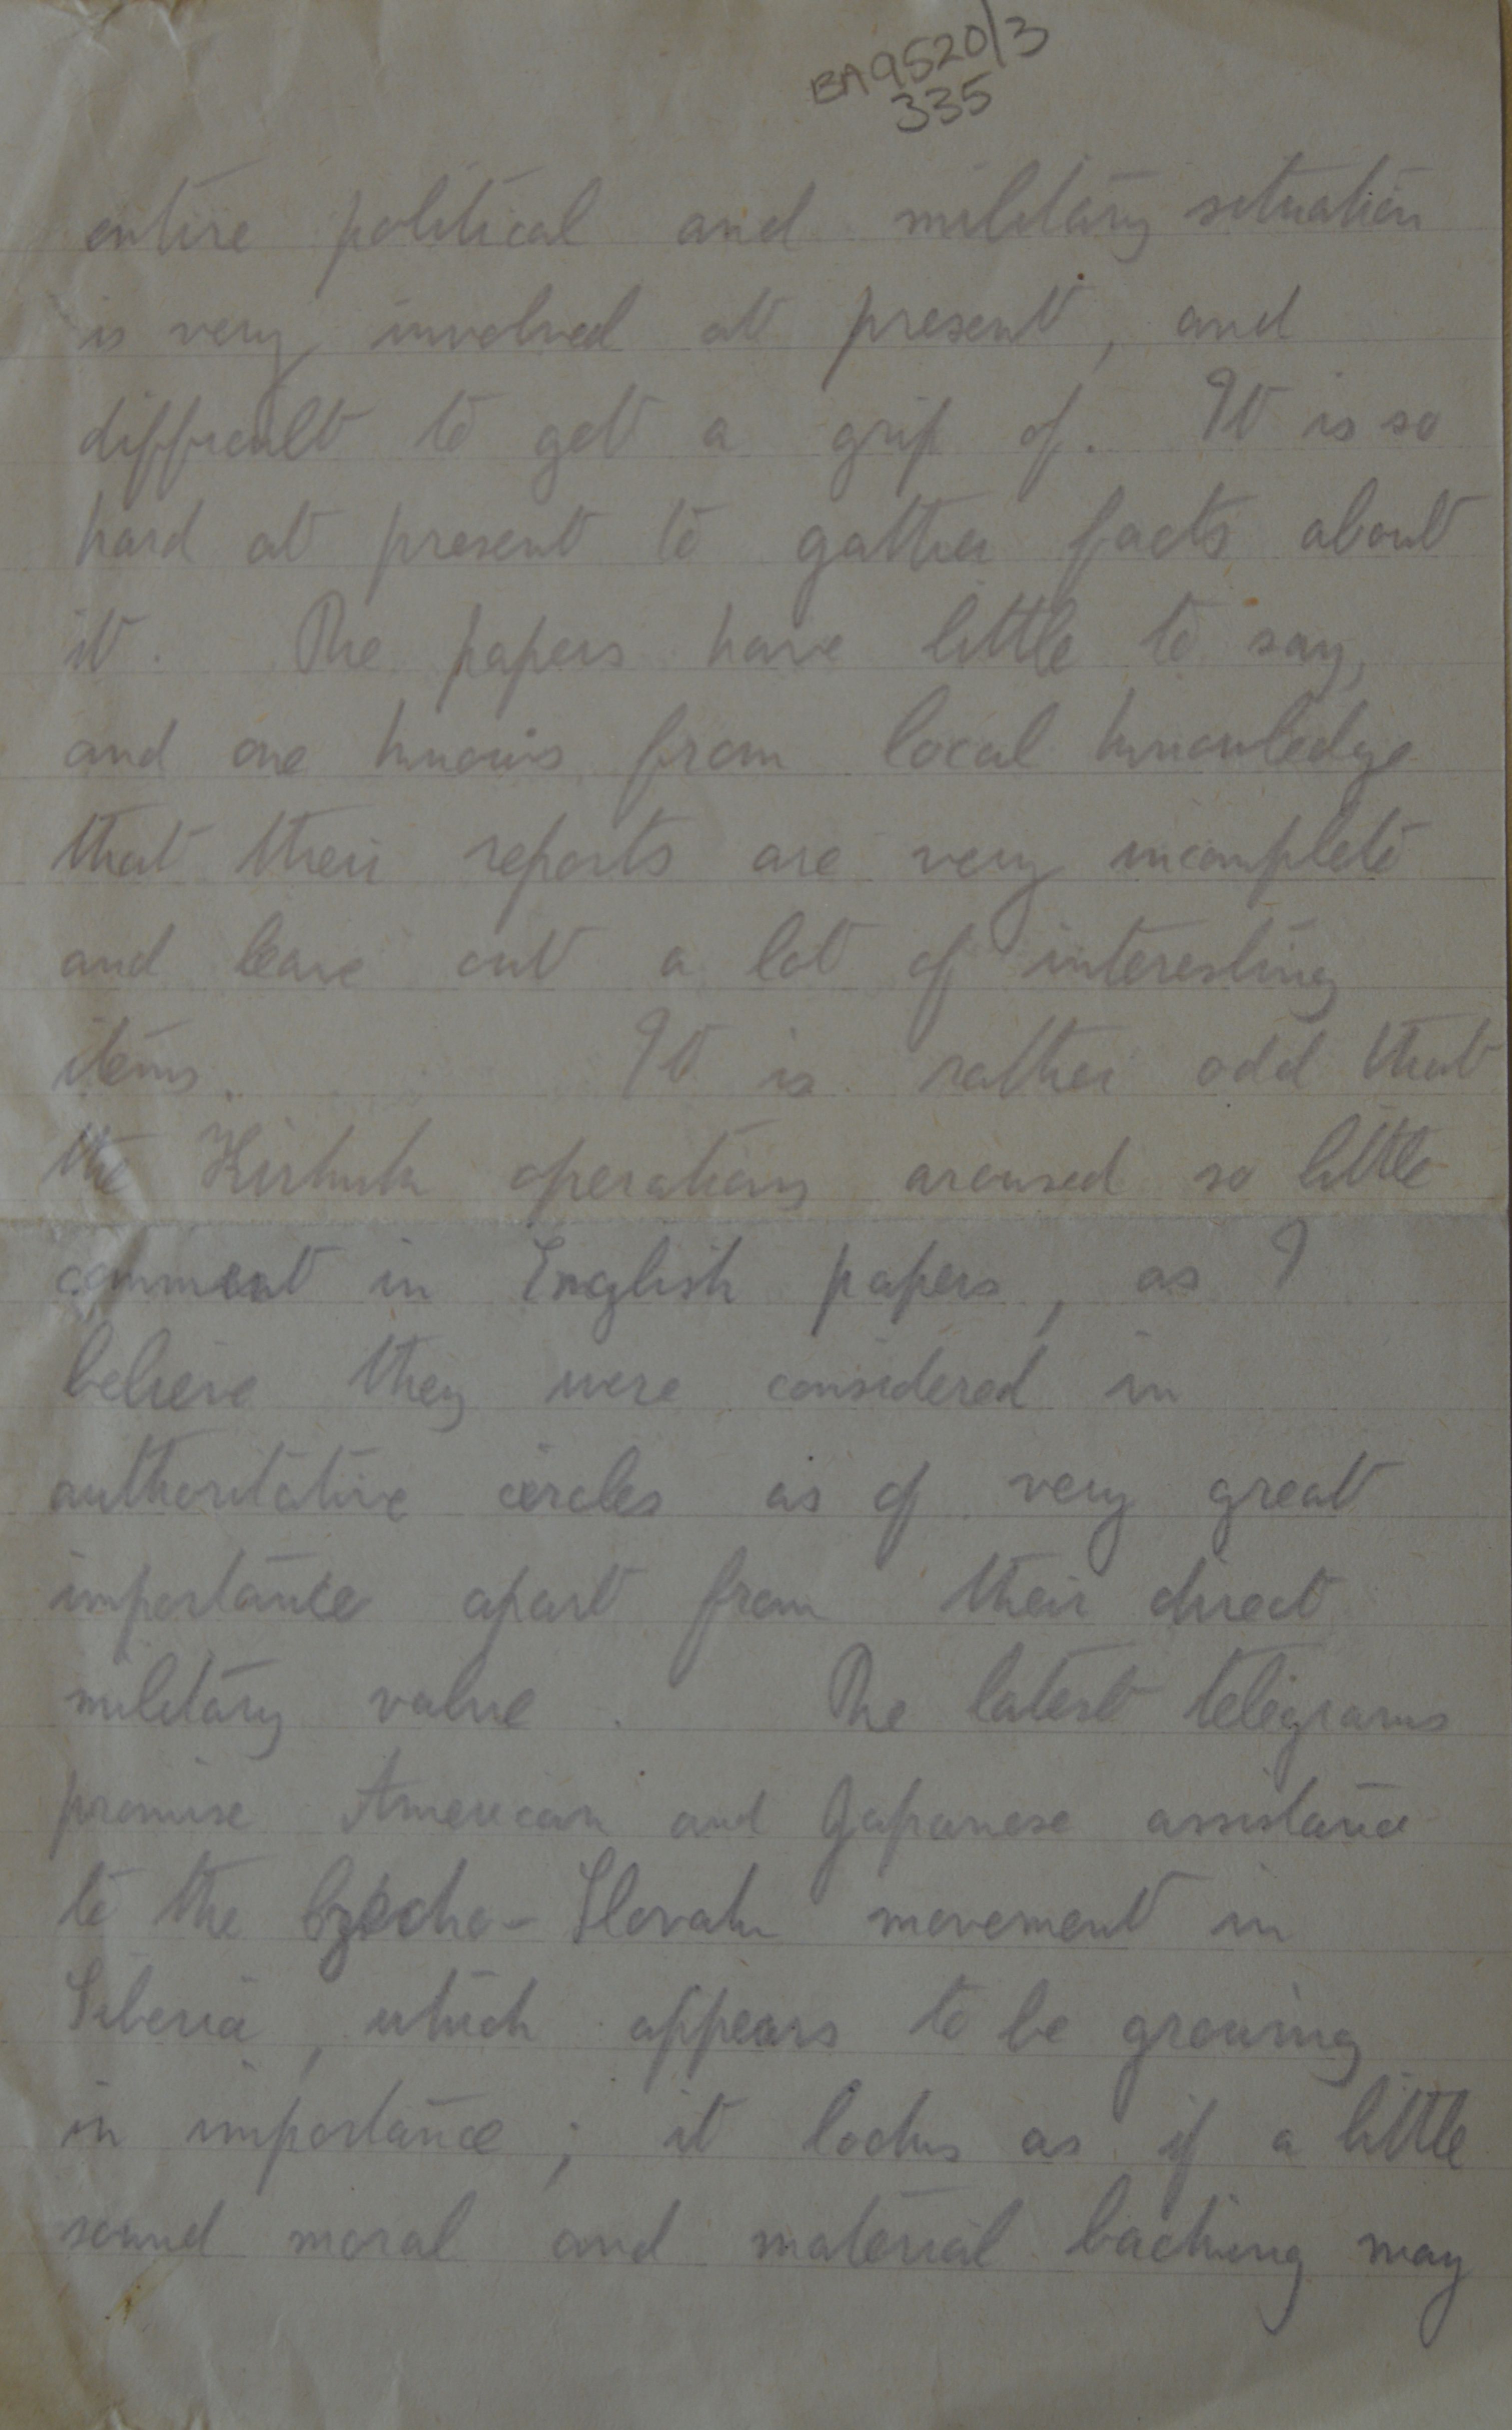 BA9520/3
335
entire political and military situation
is very involved at present, and
difficult to get a grip of. It is so
hard at present to gather facts about
it. The papers have little to say,
and one knows from local knowledge
that their reports are very incomplete
and leave out a lot of interesting
items. It is rather odd that
the Kirkuk operations aroused so little
comment in English papers, as I
believe they were considered in
authoritative circles as of very great
importance apart from their direct
military value. The latest telegrams
promise American and Japanese assistance
to the Czecho-Slovak movement in
Siberia, which appears to be growing
in importance; it looks as if a little
sound moral and material backing may